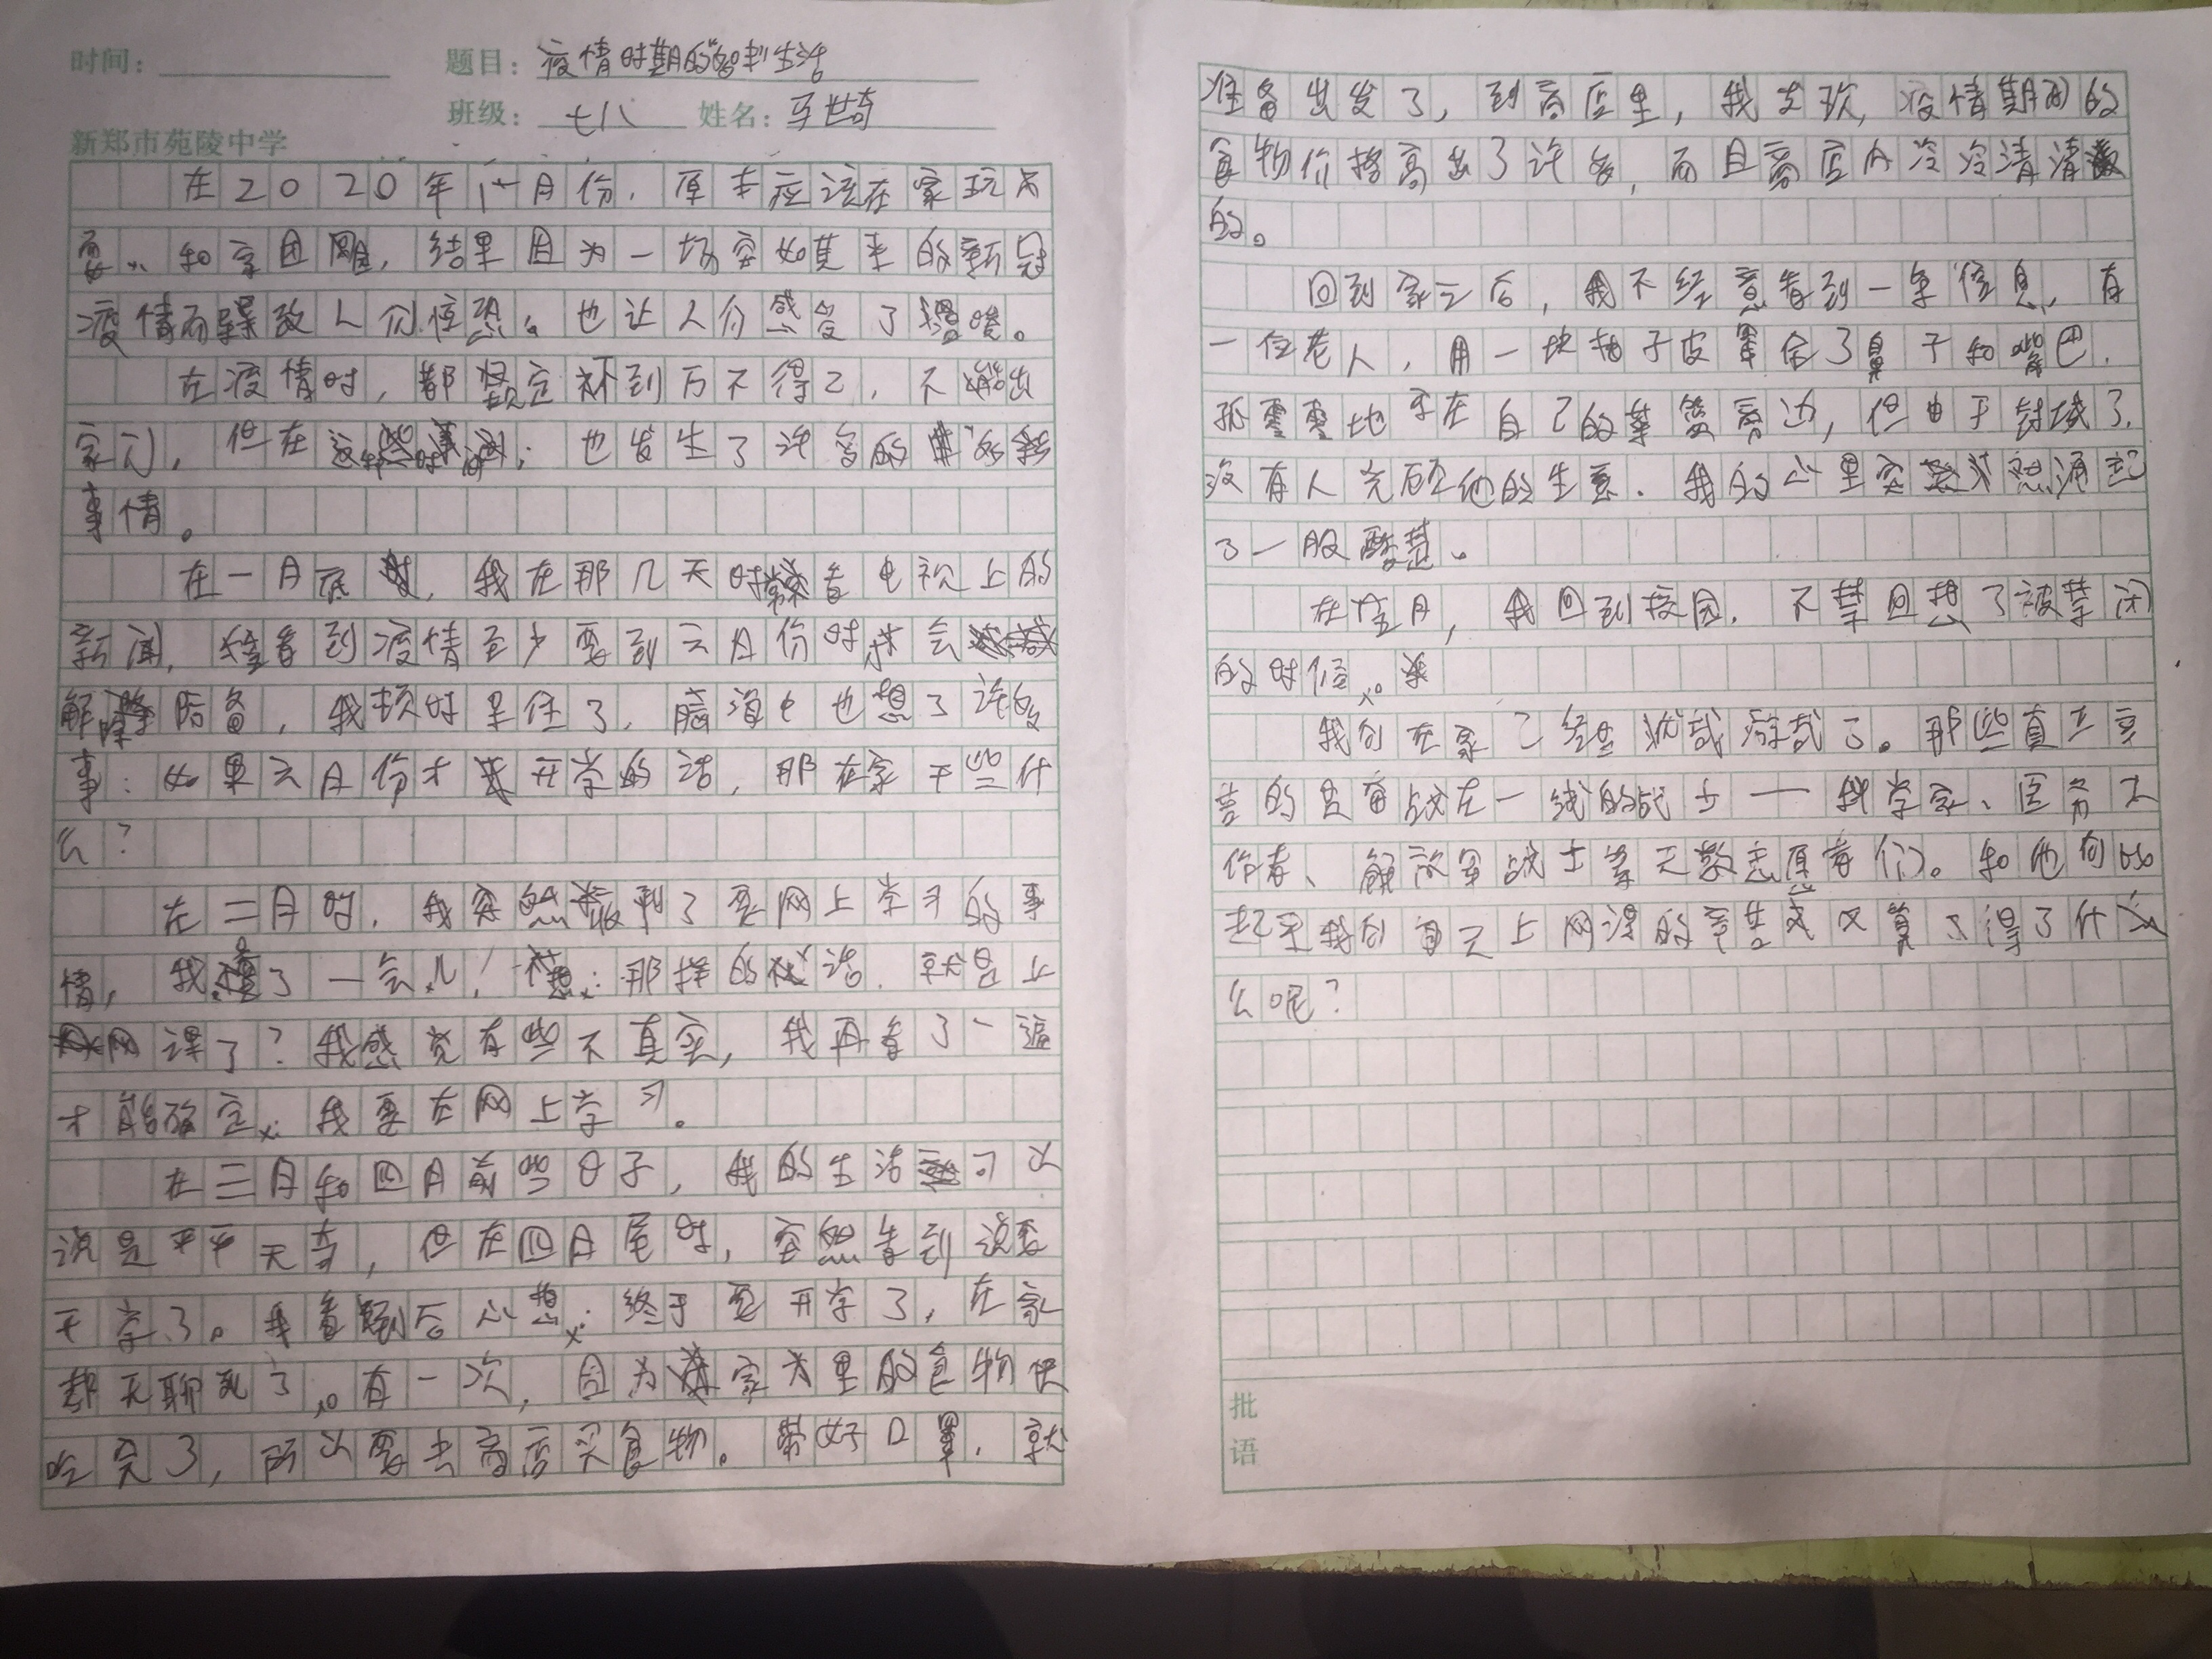 时间：
题目：疫情时期的生活
班级：七八 姓名：
新郑市苑陵中学
在2020年月份，原本应该在家玩
耍，和家团圆，结果因为一场突如其来的新冠
疫情而导致人们恐。也让人们感受了温暖。
在疫情时，都规定不到万不得已，不能出
家门，但在这些时间，也发生了许多的
事情。
在一月底，我在那几天时常看电视上的
新闻，看到疫情至少要到六月份时才会
解除防备，我顿时呆住了，脑海也想了许多
事：如果六月份才开学的话，那在家干些什
么？
在二月时，我突然接收到了要网上学习的事
情，我了一会儿，想：那样的话，就是上
网课了？我感觉有些不真实，我再看了一遍
才能确定：我要在网上学习。
在三月和四月前些日子，我的生活可以
说是平平无奇，但在四月尾时，突然看到说要
开学了。我看到后心想：终于要开学了，在家
都无聊死了。有一次，因为家里的食物快
吃完了，所以要去商店买食物。带好口罩，就
准备出发了，到商店里，我发现，疫情期间的
食物价格高出了许多，而且商店内冷冷清清
的。
回到家之后，我不经意看到一条信息，有
一位老人，用一块柚子皮罩住了鼻子和嘴巴，
孤零零地坐在自己的菜篮旁边，但由于封城了，
没有人光顾他的生意。我的心里突然涌起
了一股酸楚。
在五月，我回到校园，不禁回想了被禁闭
的时候。
我们在家已经够了。那些真正辛
苦的是奋战在一线的战士——科学家、医务工
作者、解放军战士等无数志愿者们。和他们比
起来我们每天上网课的辛苦又算得了什
么呢？
批
语